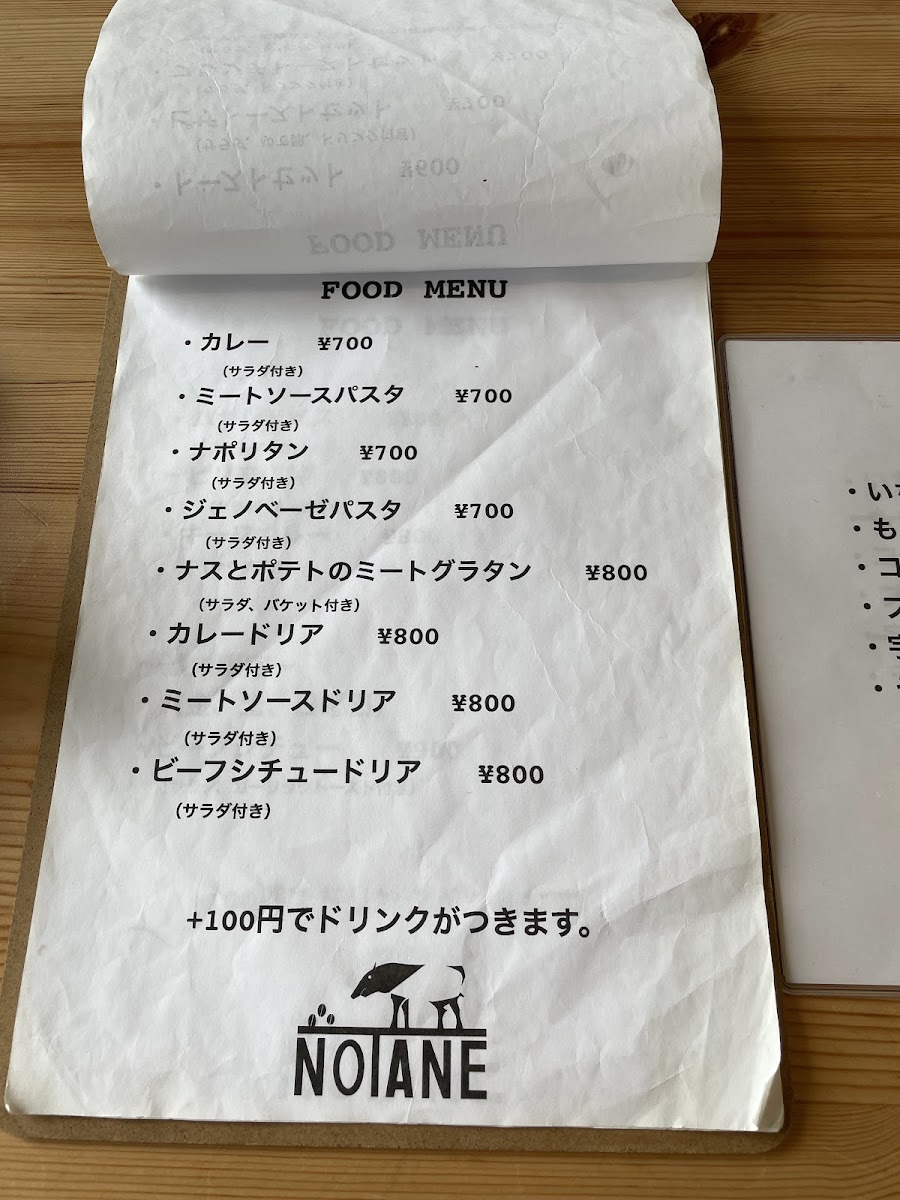 FOOD MENU
・カレー ¥700
（サラダ付き）
・ミートソースパスタ ¥700
（サラダ付き）
・ナポリタン ¥700
（サラダ付き）
・ジェノベーゼパスタ ¥700
（サラダ付き）
・ナスとポテトのミートグラタン ¥800
（サラダ、バケット付き）
・カレードリア ¥800
（サラダ付き）
・ミートソースドリア ¥800
（サラダ付き）
・ビーフシチュードリア ¥800
（サラダ付き）
+100円でドリンクがつきます。
NOTANE
・い
・も
・コ